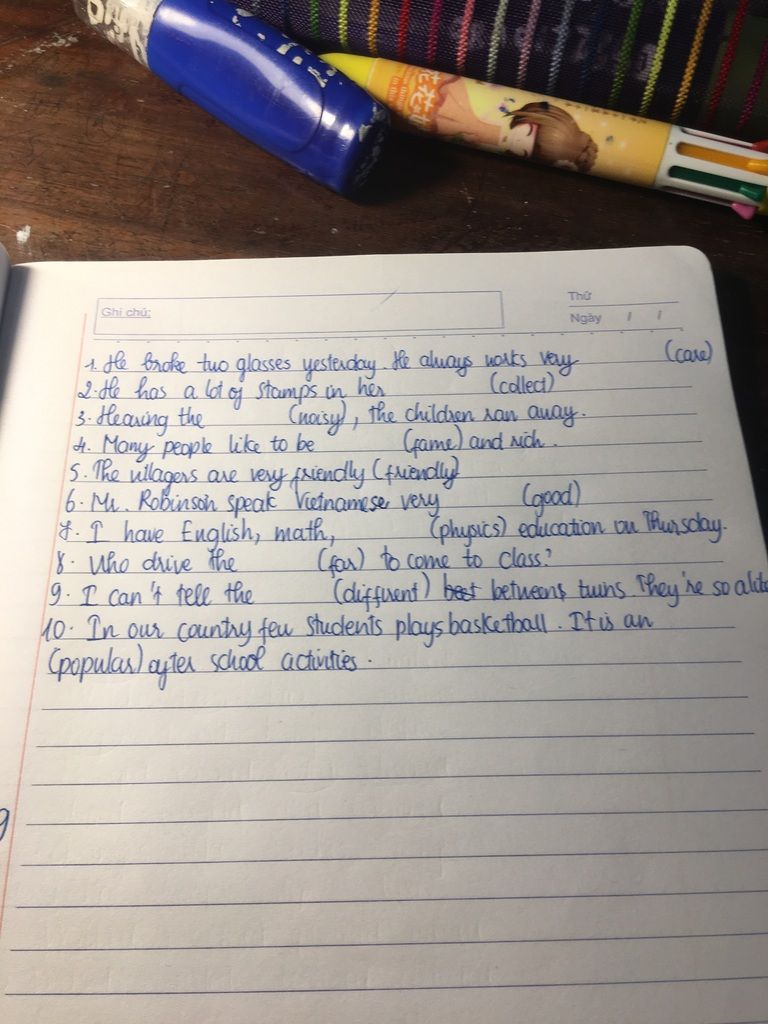 花花
Ghi chú:
Thứ
Ngày / /
1. He broke two glasses yesterday. He always works very (care)
2. He has a lot of stamps in her (collect)
3. Hearing the (noisy), the children ran away.
4. Many people like to be (fame) and rich.
5. The villagers are very friendly (friendly)
6. Mr. Robinson speak Vietnamese very (good)
7. I have English, math, (physics) education on Thursday.
8. Who drive the (far) to come to class?
9. I can't tell the (diffirent) betweens twins They're so alike
10. In our country few students plays basketball. It is an
(popular) after school activities.